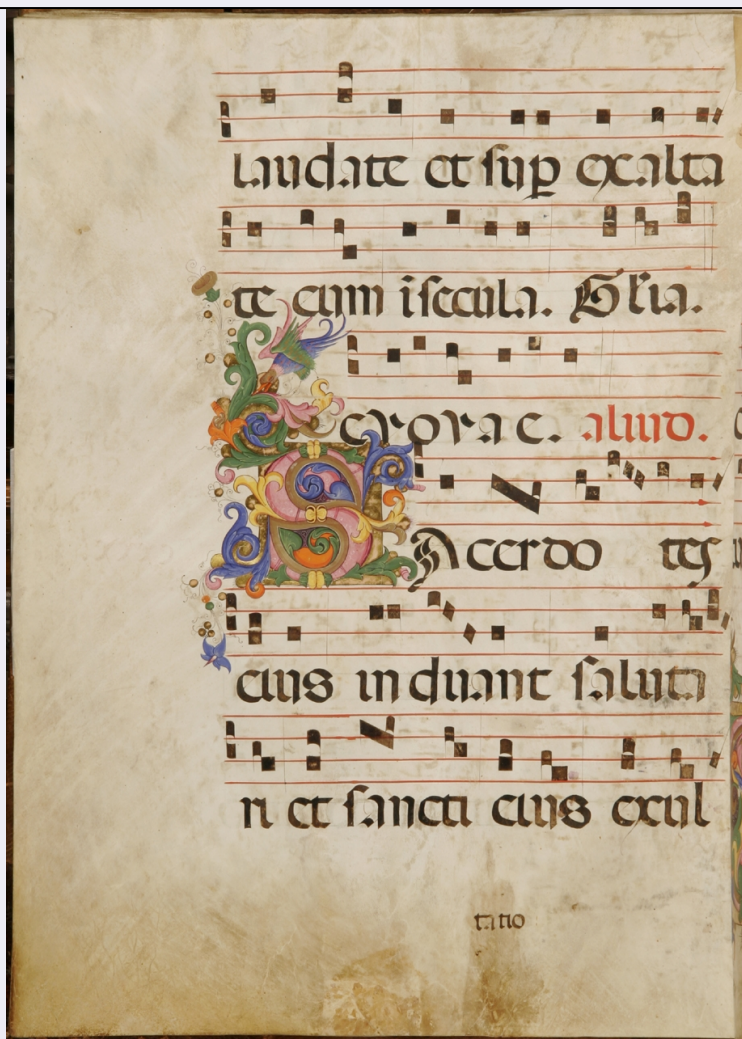 laudate et sup exalta
te eum i secula. Glia.
evovae. aliud.
SAcerdo tes
eius induant saluta
ri et sancti eius exul
tatio